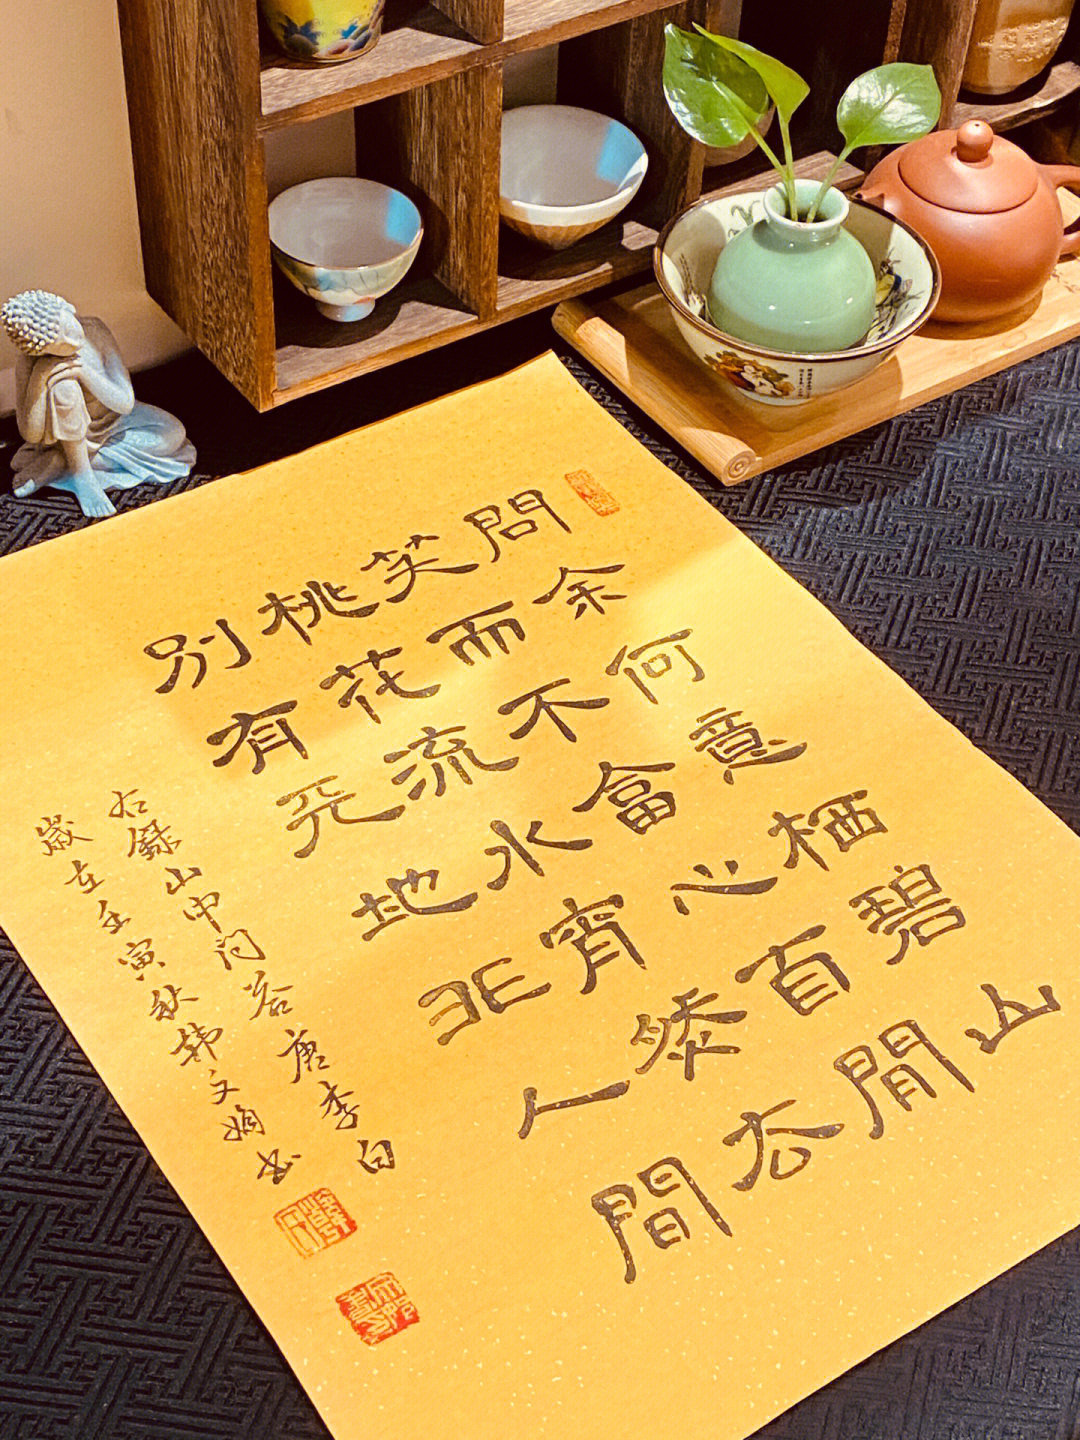 問余何意栖碧山
笑而不畣心自閒
桃花流水宵然去
別有天地非人間
右録山中问答唐李白
歲在壬寅秋韩文娟书